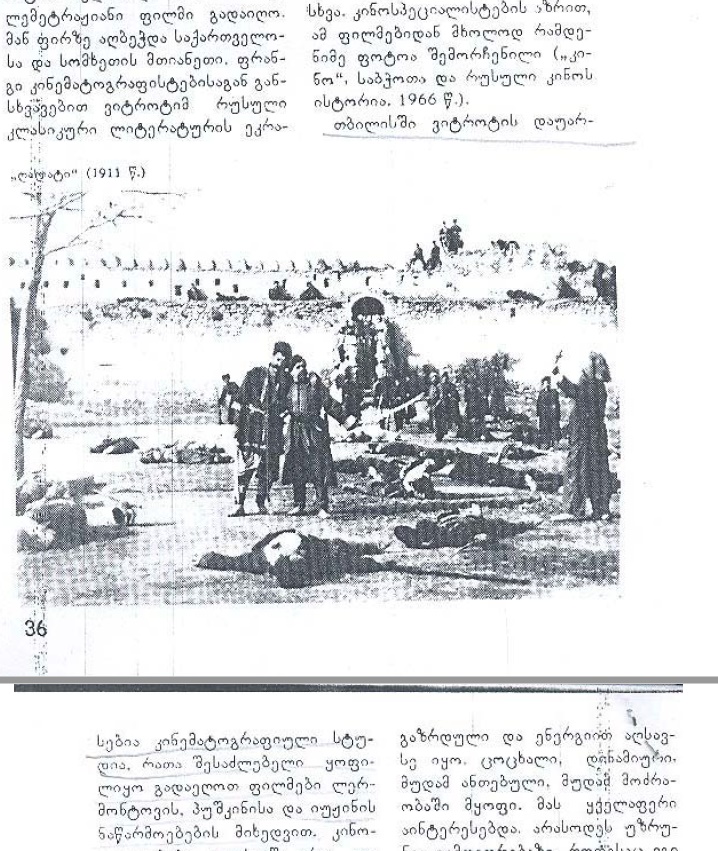 ლემეტრაჟიანი ფილმი გადაიღო.
მან ფირზე აღბეჭდა საქართველო-
სა და სომხეთის მთიანეთი. ფრან-
გი კინემატოგრაფისტებისაგან გან-
სხვავებით ვიტროტიმ რუსული
კლასიკური ლიტერატურის ეკრა-
სხვა. კინოსპეციალისტების აზრით,
ამ ფილმებიდან მხოლოდ რამდე-
ნიმე ფოტოა შემორჩენილი („კი-
ნო“, საბჭოთა და რუსული კინოს
ისტორია. 1966 წ.).
თბილისში ვიტროტის დაუარ-
„ღალატი“ (1911 წ.)
36
სებია კინემატოგრაფიული სტუ-
დია, რათა შესაძლებელი ყოფი-
ლიყო გადაეღოთ ფილმები ლერ-
მონტოვის, პუშკინისა და იუჟინის
ნაწარმოებების მიხედვით. კინო-
გაზრდული და ენერგიით აღსავ-
სე იყო. ცოცხალი, დინამიური,
მუდამ ანთებული, მუდამ მოძრა-
ობაში მყოფი. მას ყველაფერი
აინტერესებდა. არასოდეს უზრუ-